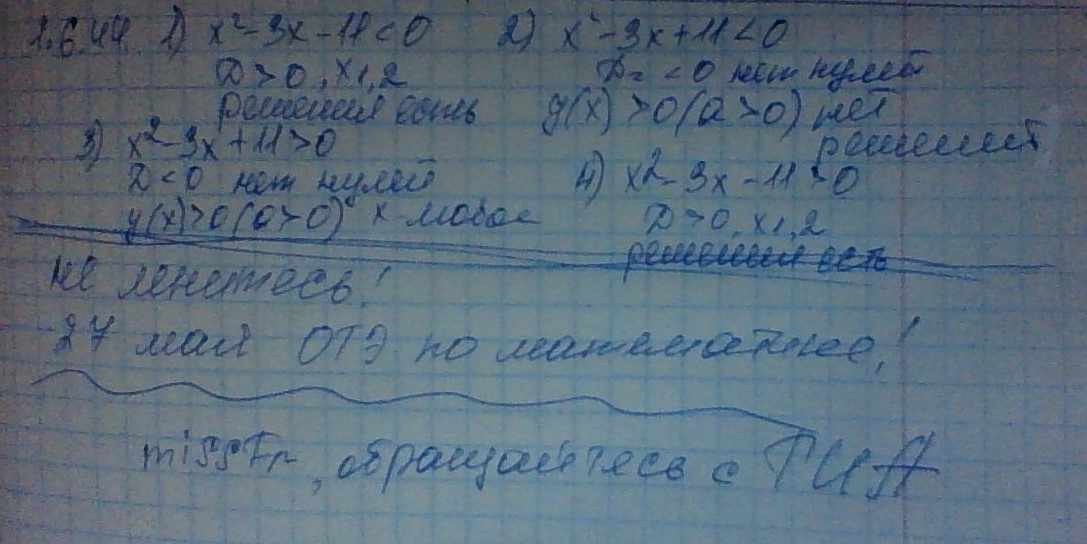 1.6.44. 1) x²-3x-11<0 2) x²-3x+11<0
D>0, x1,2 D=<0 нет нулей
решения есть y(x)>0(a>0) нет
решений
3) x²-3x+11>0
D<0 нет нулей 4) x²-3x-11>0
y(x)>0(a>0) x-любое D>0, x1,2
решения есть
не ленитесь!
27 мая ОГЭ по математике!
обращайтесь с ГИА